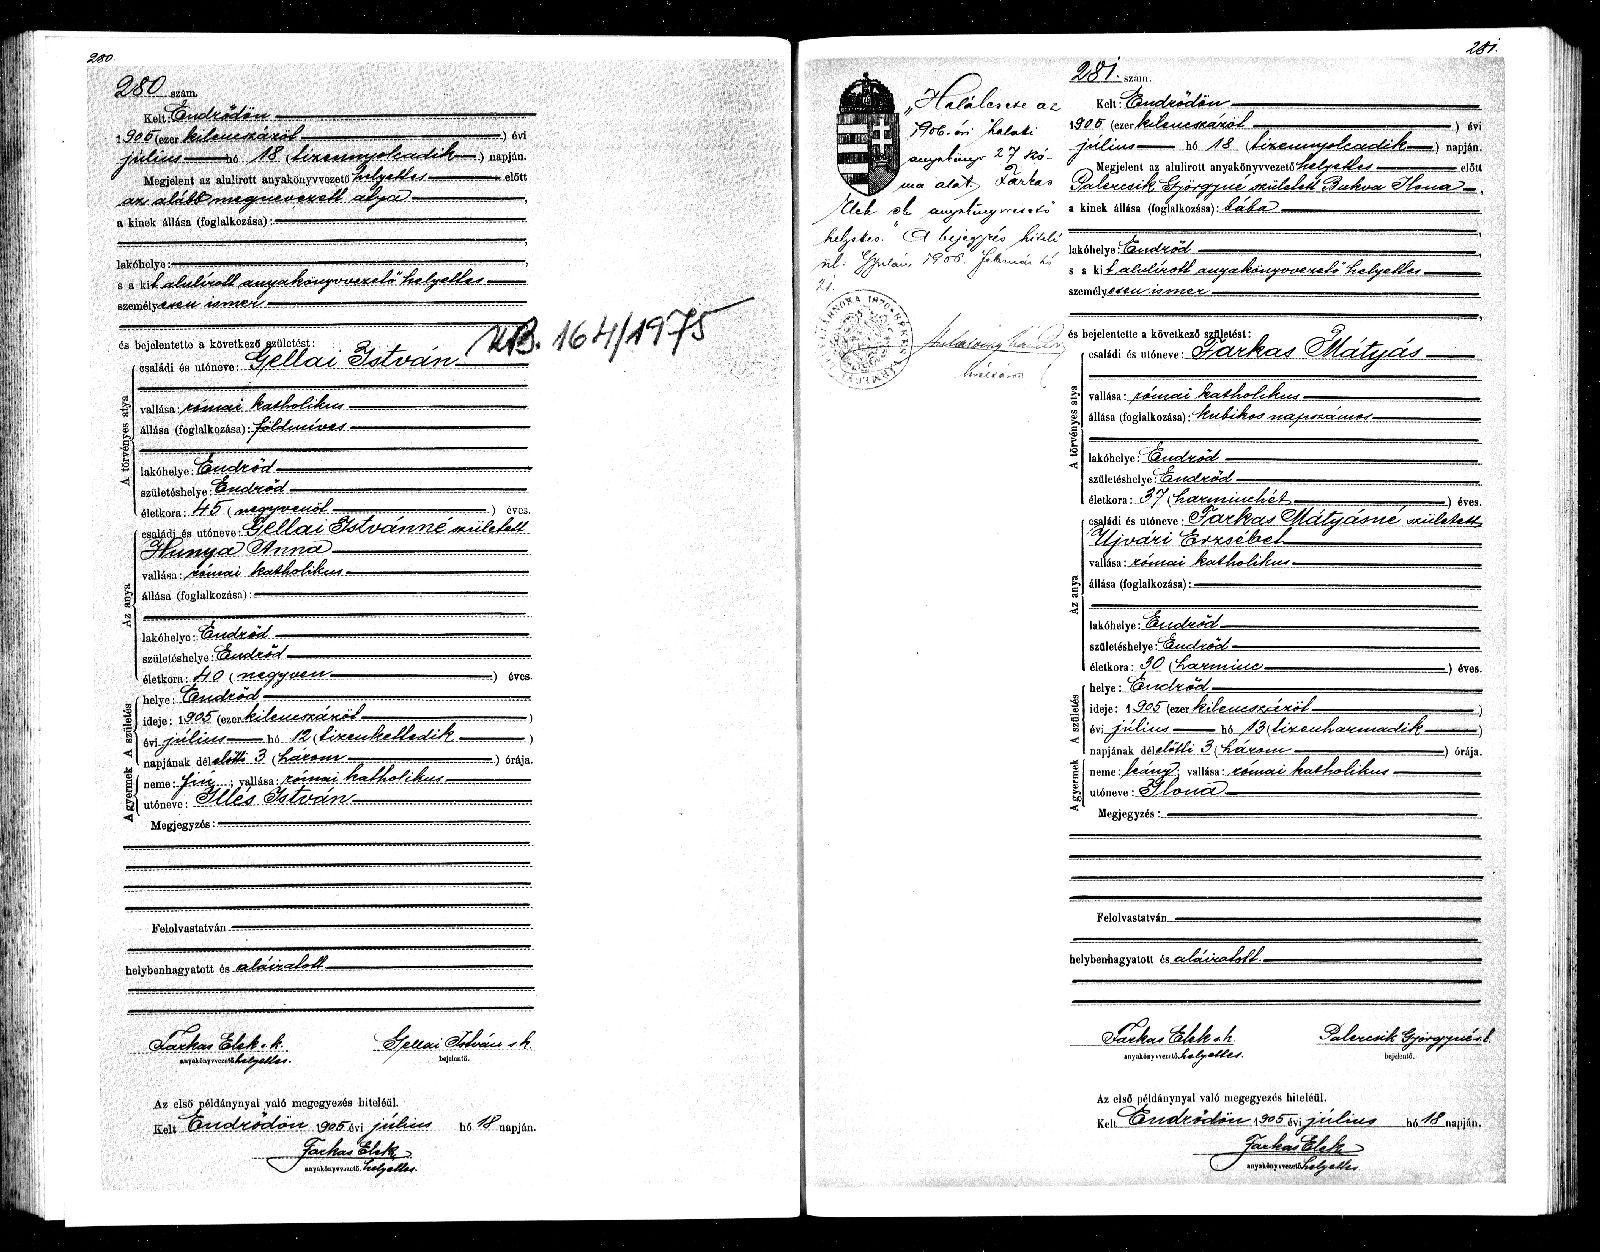 280
280 szám.
Kelt: Endrődön
1905 (ezer kilenczázöt ) évi
július hó 18 (tizennyolcadik ) napján.
Megjelent az alulirott anyakönyvvezető helyettes előtt
az alább megnevezett atya
a kinek állása (foglalkozása):
lakóhelye:
s a kit alulírott anyakönyvvezető helyettes
személyesen ismer
és bejelentette a következő születést:
A törvényes atya
családi és utóneve: Gellai István
164/1975
vallása: római katholikus
állása (foglalkozása): földmíves
lakóhelye: Endrőd
születéshelye: Endrőd
életkora: 45 (negyvenöt ) éves.
Az anya
családi és utóneve: Gellai Istvánné született
Hunya Anna
vallása: római katholikus
állása (foglalkozása):
lakóhelye: Endrőd
születéshelye: Endrőd
életkora: 40 (negyven ) éves.
A születés
helye: Endrőd
ideje: 1905 (ezer kilenczázöt )
évi július hó 12 (tizenkettedik )
napjának délelőtti 3 (három ) órája.
A gyermek
neme: fiú ; vallása: római katholikus
utóneve: Illés István
Megjegyzés:
Felolvastatván
helybenhagyatott és aláiratott
Farkas Elek s.k. Gellai István s.k.
anyakönyvvezető helyettes. bejelentő.
Az első példánynyal való megegyezés hiteléül.
Kelt Endrődön 1905 évi július hó 18 napján.
Farkas Elek
anyakönyvvezető helyettes.
281.
„Haláleset az
1906. évi halotti
anyakönyv 27 szá-
ma alat, Farkas
Elek sk anyakönyvvezető
helyettes." A bejegyzés hitelé
ül. Gyulán 1906 február hó
21.
281. szám.
Kelt: Endrődön
1905 (ezer kilenczázöt ) évi
július hó 18 (tizennyolcadik ) napján.
Megjelent az alulirott anyakönyvvezető helyettes előtt
Palercsik Györgyné született Bukva Ilona
a kinek állása (foglalkozása): bába
lakóhelye: Endrőd
s a kit alulírott anyakönyvvezető helyettes
személyesen ismer
és bejelentette a következő születést:
A törvényes atya
családi és utóneve: Farkas Mátyás
vallása: római katholikus
állása (foglalkozása): kubikos napszámos
lakóhelye: Endrőd
születéshelye: Endrőd
életkora: 37 (harminchét ) éves.
Az anya
családi és utóneve: Farkas Mátyásné született
Ujvári Erzsébet
vallása: római katholikus
állása (foglalkozása):
lakóhelye: Endrőd
születéshelye: Endrőd
életkora: 30 (harminc ) éves.
A születés
helye: Endrőd
ideje: 1905 (ezer kilenczázöt )
évi július hó 13 (tizenharmadik )
napjának délelőtti 3 (három ) órája.
A gyermek
neme: leány ; vallása: római katholikus
utóneve: Ilona
Megjegyzés:
Felolvastatván
helybenhagyatott és aláiratott
Farkas Elek s.k. Palercsik Györgyné s.k.
anyakönyvvezető helyettes. bejelentő.
Az első példánynyal való megegyezés hiteléül.
Kelt Endrődön 1905 évi július hó 18 napján.
Farkas Elek
anyakönyvvezető helyettes.